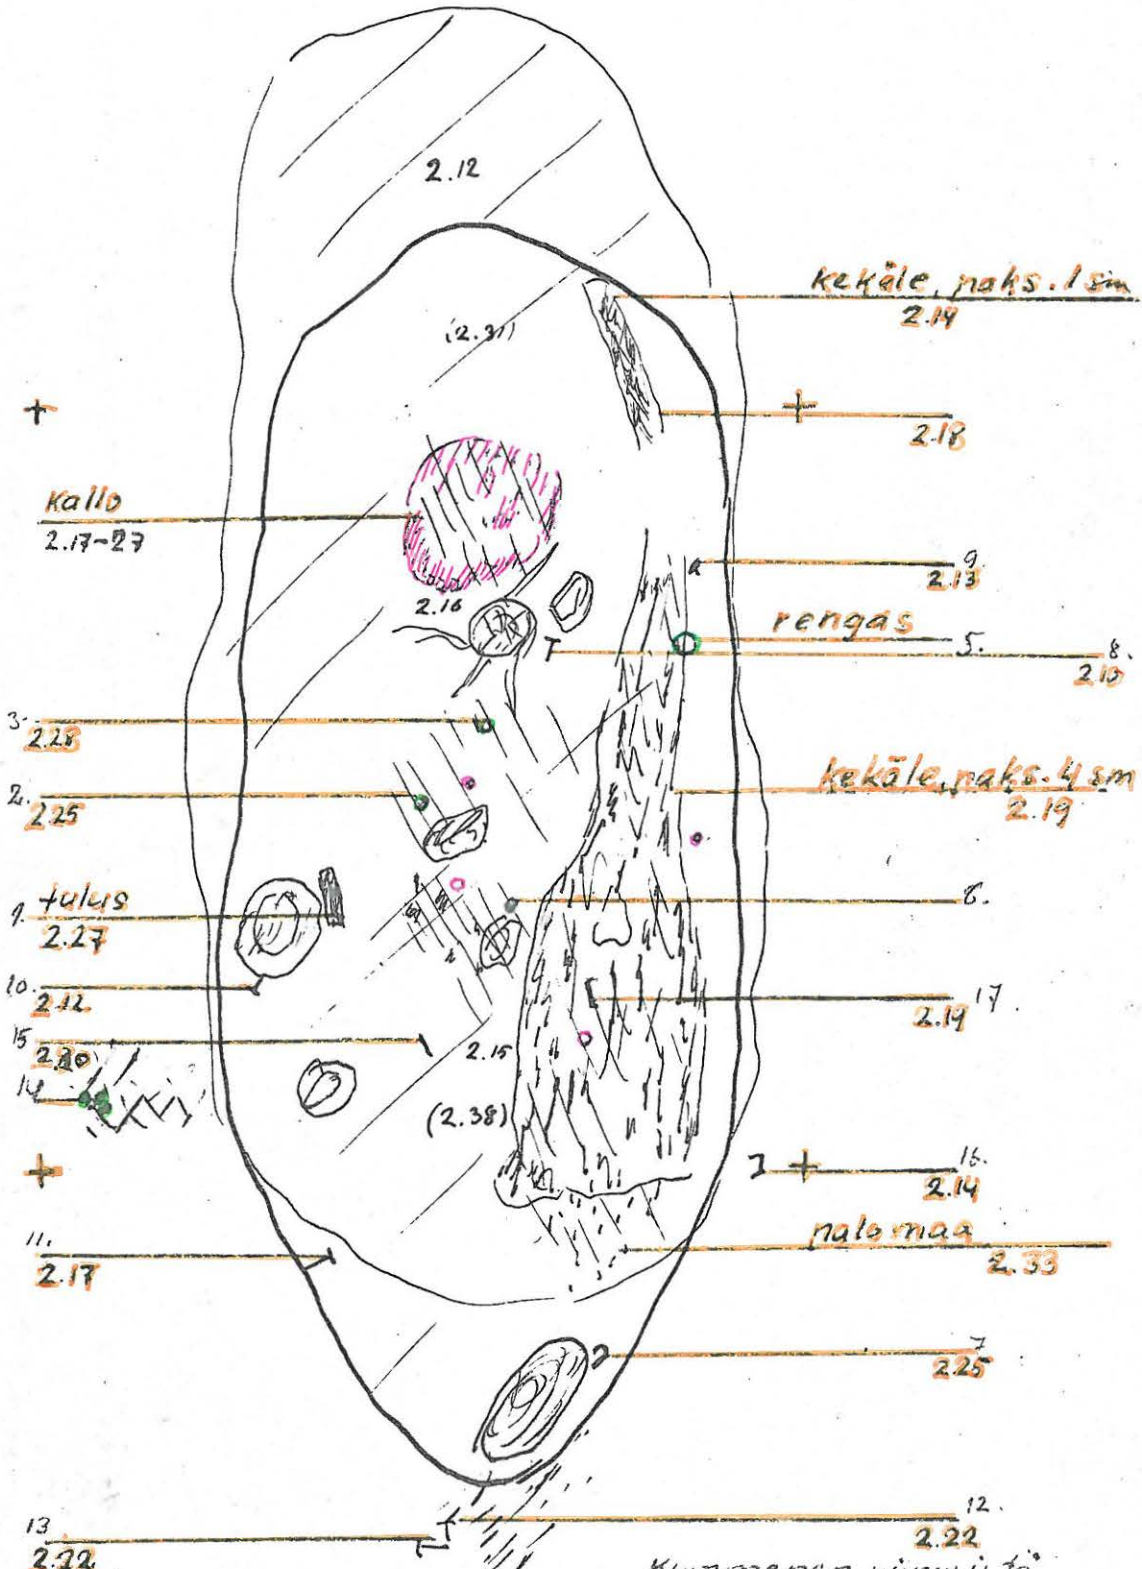 2.12
kekäle, paks. 1 sm
2.14
(2.31)
2.18
kallo
2.17-27
9
2.13
2.16
rengas
5.
8.
2.10
3.
2.28
kekäle, paks. 4 sm
2.19
2.
2.25
6.
tulus
2.27
10.
2.12
17
2.19
15
2.15
14
(2.38)
16.
2.14
11.
2.17
palomaa
2.33
7
2.25
12.
2.22
13
2.22